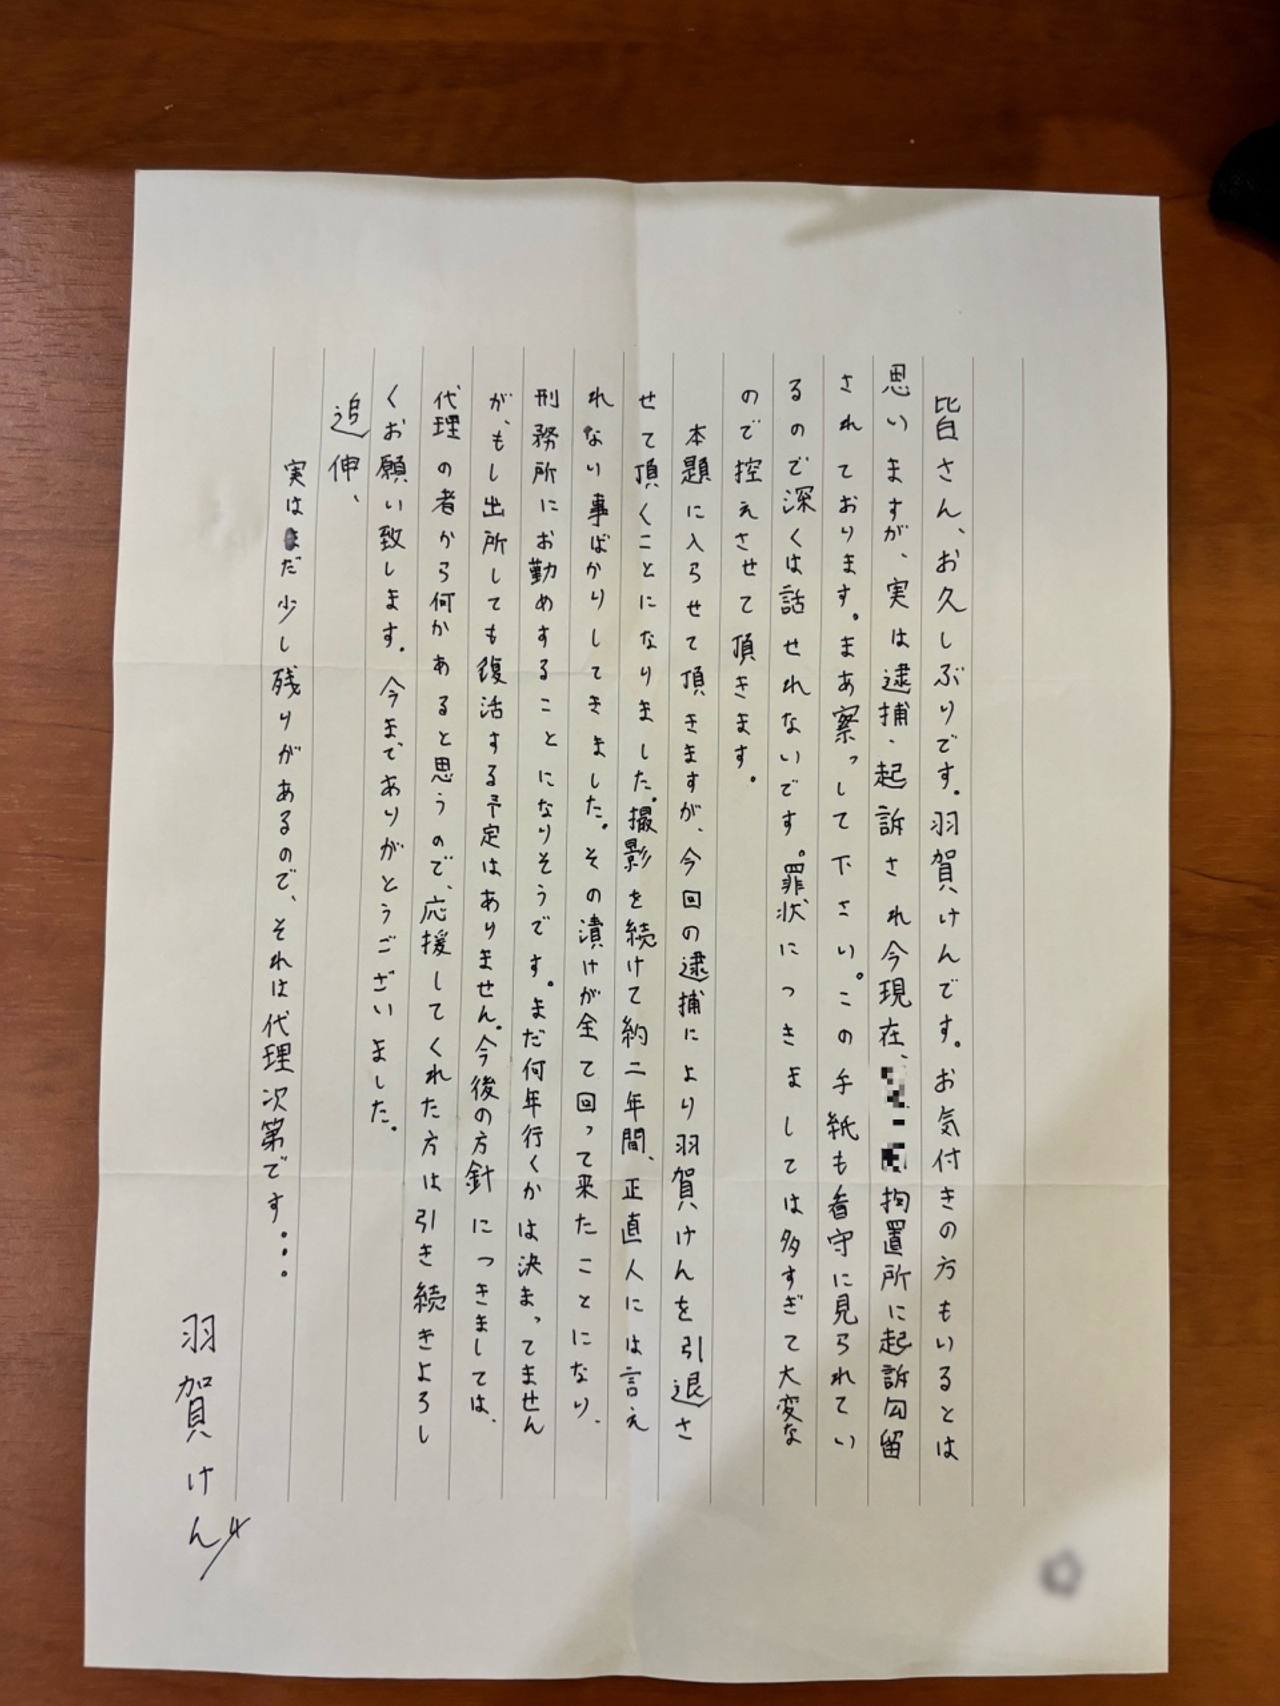 皆さん、お久しぶりです。羽賀けんです。お気付きの方もいるとは
思いますが、実は逮捕・起訴され今現在、拘置所に起訴勾留
されております。まあ察って下さい。この手紙も看守に見られてい
るので深くは話せれないです。罪状につきましては多すぎて大変な
ので控えさせて頂きます。
本題に入らせて頂きますが、今回の逮捕により羽賀けんを引退さ
せて頂くことになりました。撮影を続けて約二年間、正直人には言え
れない事ばかりしてきました。その漬けが全て回って来たことになり、
刑務所にお勤めすることになりそうです。まだ何年行くかは決まってません
が、もし出所しても復活する予定はありません。今後の方針につきましては、
代理の者から何かあると思うので、応援してくれた方は引き続きよろし
くお願い致します。今までありがとうございました。
追伸、
実はまだ少し残りがあるので、それは代理次第です。・・・
羽賀けん